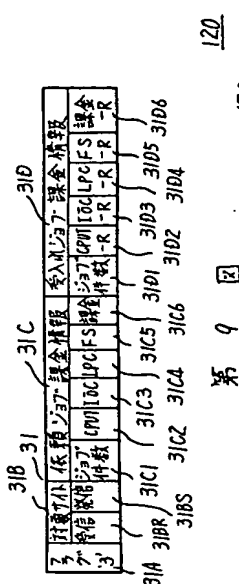 31B 31 31C 31D
フラグ '3' 対象サイト 依頼ジョブ課金情報 受入れジョブ課金情報
受信 発信 ジョブ件数 CPUT IOC LPC FS 課金 ジョブ件数 CPUT-R IOC-R LPC-R FS-R 課金-R
31A 31BR 31BS 31C1 31C2 31C3 31C4 31C5 31C6 31D1 31D2 31D3 31D4 31D5 31D6
第 9 図
120